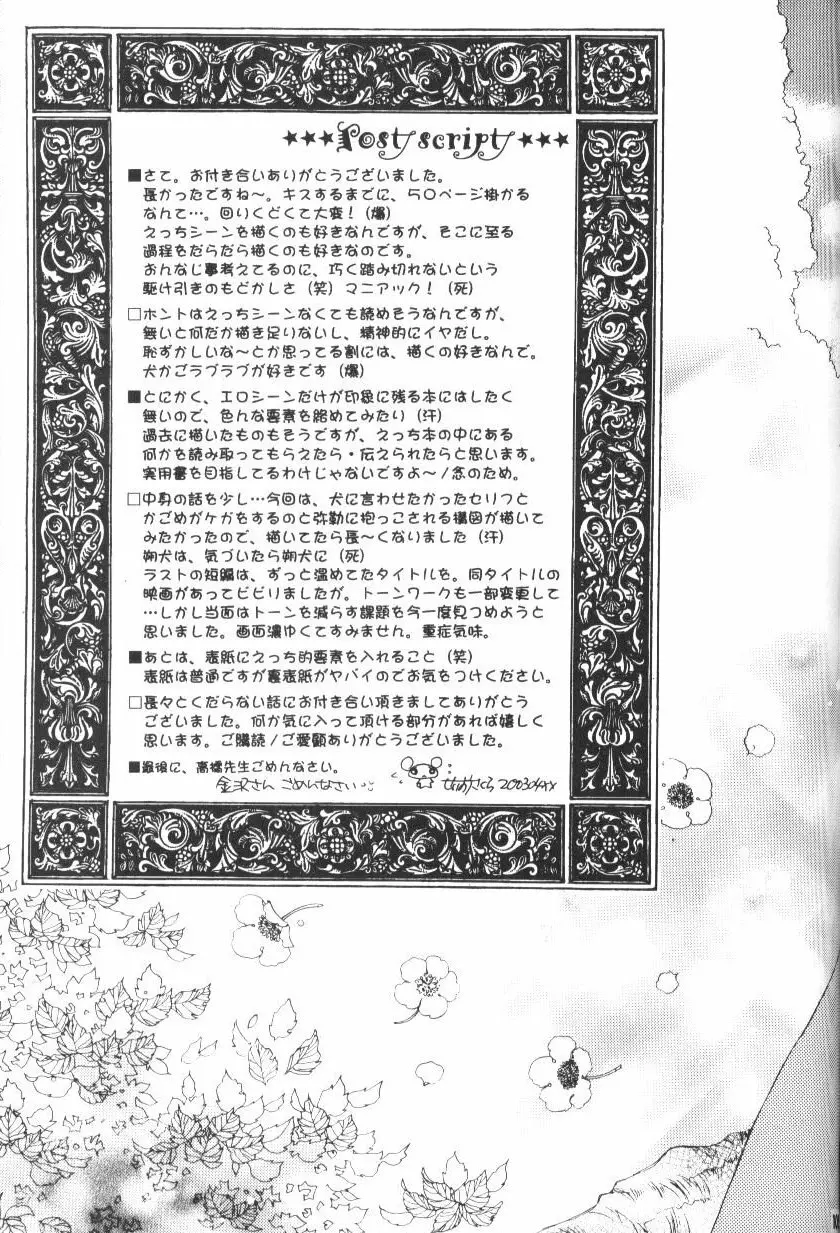 ★★★Post script★★★
■さて。お付き合いありがとうございました。
長かったですね～。キスするまでに、50ページ掛かる
なんて…。回りくどくて大変！(爆)
えっちシーンを描くのも好きなんですが、そこに至る
過程をだらだら描くのも好きなのです。
おんなじ事考えてるのに、巧く踏み切れないという
駆け引きのもどかしさ(笑)マニアック！(死)
□ホントはえっちシーンなくても読めそうなんですが、
無いと何だか描き足りないし、精神的にイヤだし。
恥ずかしいな～とか思ってる割には、描くの好きなんで。
犬かごラブラブが好きです(爆)
■とにかく、エロシーンだけが印象に残る本にはしたく
無いので、色んな要素を絡めてみたり(汗)
過去に描いたものもそうですが、えっち本の中にある
何かを読み取ってもらえたら・伝えられたらと思います。
実用書を目指してるわけじゃないですよ～/念のため。
□中身の話を少し…今回は、犬に言わせたかったセリフと
かごめがケガをするのと弥勒に抱っこされる構図が描いて
みたかったので、描いてたら長～くなりました(汗)
朔犬は、気づいたら朔犬に(死)
ラストの短編は、ずっと温めてたタイトルを。同タイトルの
映画があってビビりましたが。トーンワークも一部変更して
…しかし当面はトーンを減らす課題を今一度見つめようと
思いました。画面濃ゆくてすみません。重症気味。
■あとは、表紙にえっち的要素を入れること(笑)
表紙は普通ですが裏表紙がヤバイのでお気をつけください。
□長々とくだらない話にお付き合い頂きましてありがとう
ございました。何か気に入って頂ける部分があれば嬉しく
思います。ご購読/ご愛顧ありがとうございました。
■最後に、高橋先生ごめんなさい。
金沢さんごめんなさい